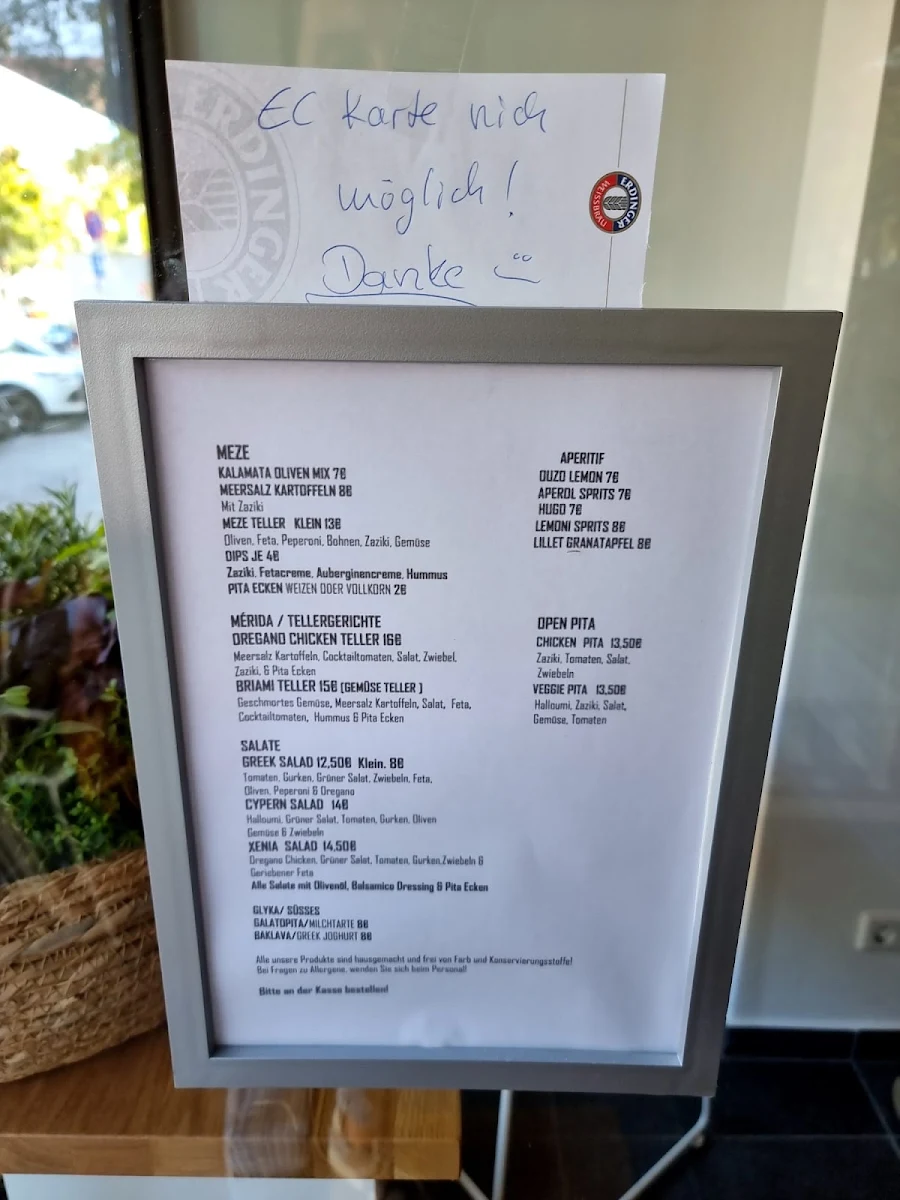 EC Karte nich
möglich!
Danke
ERDINGER
ERDINGER
WEISSBRÄU
MEZE
KALAMATA OLIVEN MIX 7€
MEERSALZ KARTOFFELN 8€
Mit Zaziki
MEZE TELLER KLEIN 13€
Oliven, Feta, Peperoni, Bohnen, Zaziki, Gemüse
DIPS JE 4€
Zaziki, Fetacreme, Auberginencreme, Hummus
PITA ECKEN WEIZEN ODER VOLLKORN 2€
APERITIF
OUZO LEMON 7€
APEROL SPRITS 7€
HUGO 7€
LEMONI SPRITS 8€
LILLET GRANATAPFEL 8€
MÉRIDA / TELLERGERICHTE
OREGANO CHICKEN TELLER 16€
Meersalz Kartoffeln, Cocktailtomaten, Salat, Zwiebel,
Zaziki, & Pita Ecken
BRIAMI TELLER 15€ (GEMÜSE TELLER )
Geschmortes Gemüse, Meersalz Kartoffeln, Salat, Feta,
Cocktailtomaten, Hummus & Pita Ecken
OPEN PITA
CHICKEN PITA 13,50€
Zaziki, Tomaten, Salat,
Zwiebeln
VEGGIE PITA 13,50€
Halloumi, Zaziki, Salat,
Gemüse, Tomaten
SALATE
GREEK SALAD 12,50€ Klein. 8€
Tomaten, Gurken, Grüner Salat, Zwiebeln, Feta,
Oliven, Peperoni & Oregano
CYPERN SALAD 14€
Halloumi, Grüner Salat, Tomaten, Gurken, Oliven
Gemüse & Zwiebeln
XENIA SALAD 14,50€
Oregano Chicken, Grüner Salat, Tomaten, Gurken,Zwiebeln &
Geriebener Feta
Alle Salate mit Olivenöl, Balsamico Dressing & Pita Ecken
GLYKA/ SÜSSES
GALATOPITA/MILCHTARTE 8€
BAKLAVA/GREEK JOGHURT 8€
Alle unsere Produkte sind hausgemacht und frei von Farb und Konservierungsstoffe!
Bei Fragen zu Allergene, wenden Sie sich beim Personal!
Bitte an der Kasse bestellen!